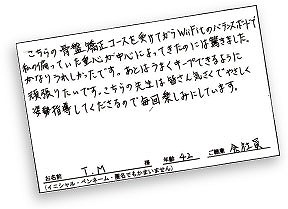 こちらの骨盤矯正コースを受けてからWiiFitのバランスボードで
私の偏っていた重心が中心によってきたのには驚きました。
かなりうれしかったです。あとはうまくキープできるように
頑張りたいです。こちらの先生は皆さん気さくでやさしく
姿勢指導してくださるので毎回楽しみにしています。
お名前 T.M 様 年齢 42 ご職業 会社員
(イニシャル・ペンネーム・匿名でもかまいません)